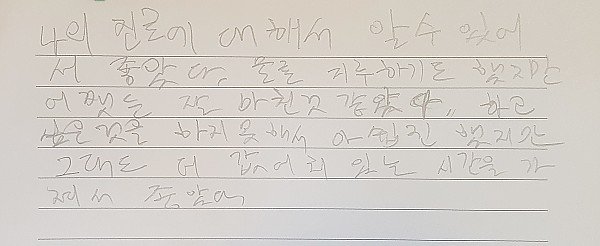 나의 진로에 대해서 알 수 있어
서 좋았다. 물론 지루하기도 했지만
어쨌든 잘 마친것 같았다,, 하고
싶은것을 하지 못해서 아쉽진 했지만
그래도 더 값어치 있는 시간을 가
져서 좋았어.